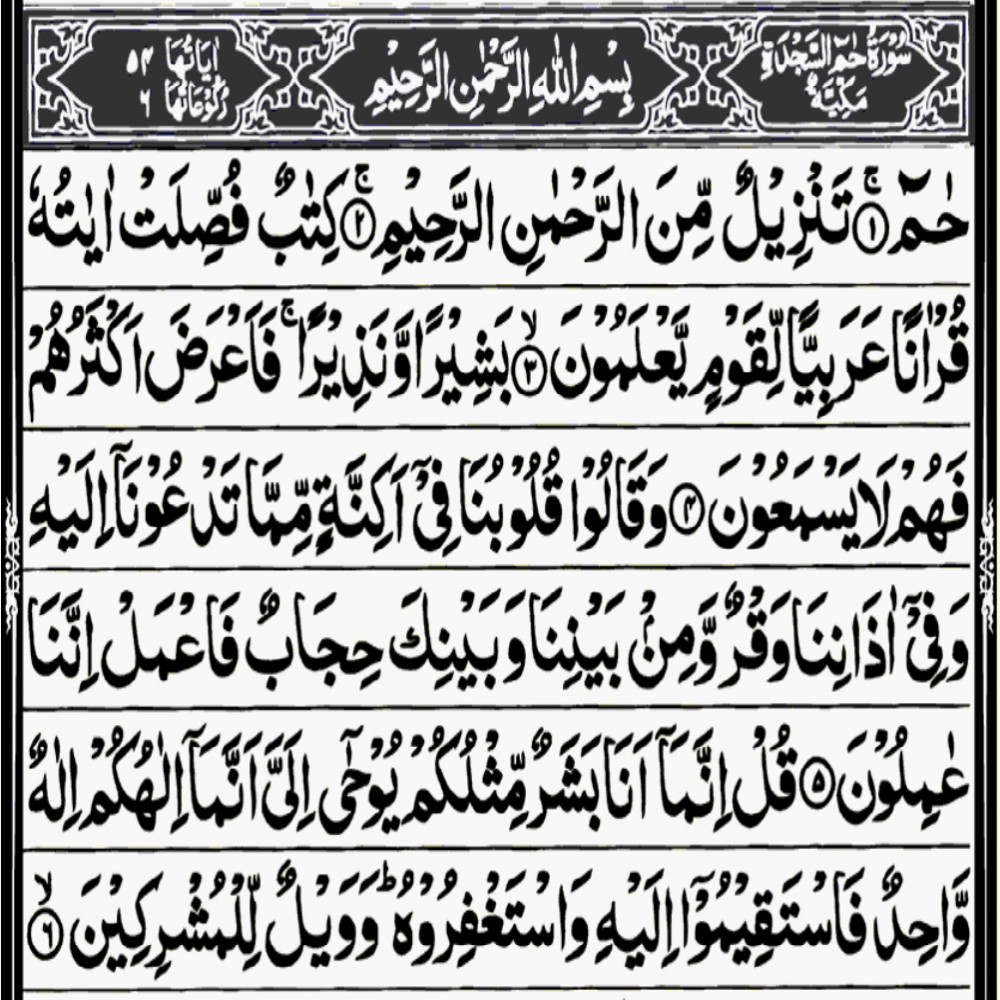 سُوْرَةُ حٰمٓ السَّجْدَةِ مَكِّيَّةٌ
بِسْمِ اللّٰهِ الرَّحْمٰنِ الرَّحِيْمِ
اٰيَاتُهَا ٥٤ رُكُوْعَاتُهَا ٦
حٰمٓ ۚ ﴿١﴾ تَنْزِيْلٌ مِّنَ الرَّحْمٰنِ الرَّحِيْمِ ۚ ﴿٢﴾ كِتٰبٌ فُصِّلَتْ اٰيٰتُهٗ
قُرْاٰنًا عَرَبِيًّا لِّقَوْمٍ يَّعْلَمُوْنَ ۙ ﴿٣﴾ بَشِيْرًا وَّنَذِيْرًا ۚ فَاَعْرَضَ اَكْثَرُهُمْ
فَهُمْ لَا يَسْمَعُوْنَ ﴿٤﴾ وَقَالُوْا قُلُوْبُنَا فِىْٓ اَكِنَّةٍ مِّمَّا تَدْعُوْنَاۤ اِلَيْهِ
وَفِىْٓ اٰذَانِنَا وَقْرٌ وَّمِنْۢ بَيْنِنَا وَبَيْنِكَ حِجَابٌ فَاعْمَلْ اِنَّنَا
عٰمِلُوْنَ ﴿٥﴾ قُلْ اِنَّمَاۤ اَنَا بَشَرٌ مِّثْلُكُمْ يُوْحٰٓى اِلَىَّ اَنَّمَاۤ اِلٰهُكُمْ اِلٰهٌ
وَّاحِدٌ فَاسْتَقِيْمُوْۤا اِلَيْهِ وَاسْتَغْفِرُوْهُ ؕ وَوَيْلٌ لِّلْمُشْرِكِيْنَ ۙ ﴿٦﴾